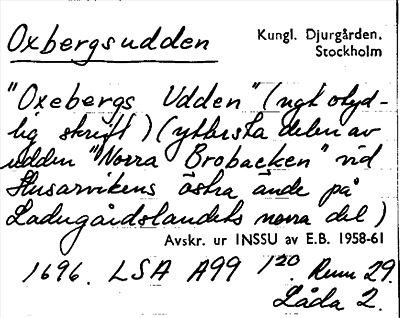 Oxbergsudden
Kungl. Djurgården.
Stockholm
"Oxebergs Udden" (ngt otyd-
lig skrift) (yttersta delen av
udden "Norra Brobacken" vid
Husarvikens östra ände på
Ladugårdslandets norra del)
Avskr. ur INSSU av E.B. 1958-61
1696. LSA A99 1:20. Rum 29.
Låda 2.